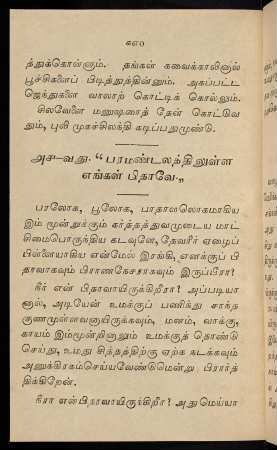 ௧௧௦
த்துக்கொள்ளும். தங்கள் கவைக்காலினால்
பூச்சிகளைப் பிடித்துத்தின்னும். அகப்பட்ட
ஜெந்துகளை வாலாற் கொட்டிக் கொல்லும்.
சிலவேளை மனுஷரைத் தேள் கொட்டுவ
தும், புலி முகச்சிலந்தி கடிப்பதுமுண்டு.
௩௪-வது. “பரமண்டலத்திலுள்ள
எங்கள் பிதாவே.„
பரலோக, பூலோக, பாதாளலொகமாகிய
இம் மூன்றுக்கும் கர்த்தத்துவமுடைய மாட்
சிமைபொருந்திய கடவுளே, தேவரீர் ஏழைப்
பிள்ளையாகிய என்மேல் இரங்கி, எனக்குப் பி
தாவாகவும் பிராணநேசராகவும் இருப்பீரா?
நீர் என் பிதாவாயிருக்கிறீரா? அப்படியா
னால், அடியேன் உமக்குப் பணிந்து சாந்த
குணமுள்ளவனாயிருக்கவும், மனம், வாக்கு,
காயம் இம்மூன்றினாலும் உமக்குத் தொண்டு
செய்து, உமது சித்தத்திற்கு ஏற்க நடக்கவும்
அனுக்கிரகம்செய்யவேண்டுமென்று பிரார்த்
திக்கிறேன்.
நீரா என்பிதாவாயிருக்கிறீர்? அதுமெய்யா